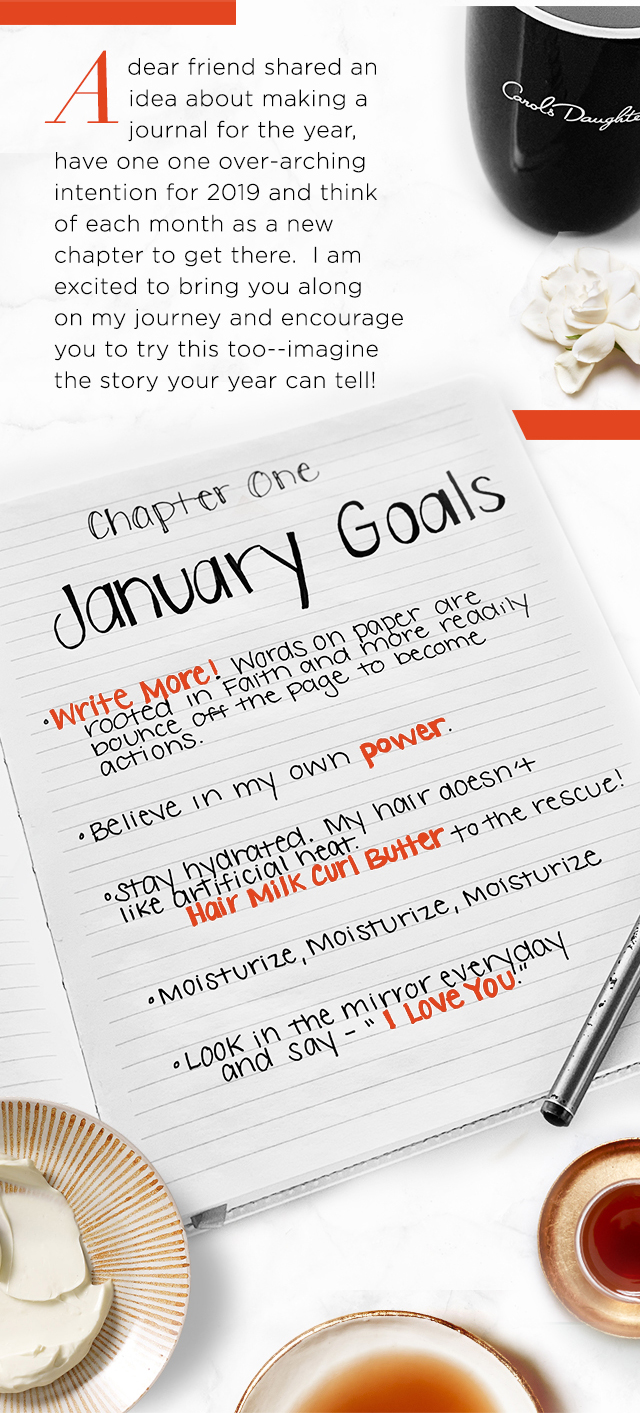 A dear friend shared an
idea about making a
journal for the year,
have one one over-arching
intention for 2019 and think
of each month as a new
chapter to get there. I am
excited to bring you along
on my journey and encourage
you to try this too--imagine
the story your year can tell!
Carol's Daughte
Chapter One
January Goals
•Write More! Words on paper are
rooted in Faith and more readily
bounce off the page to become
actions.
•Believe in my own power.
•Stay hydrated. My hair doesn't
like artificial heat.
Hair Milk Curl Butter to the rescue!
•Moisturize, Moisturize, Moisturize
•Look in the mirror everyday
and say - "I Love You."